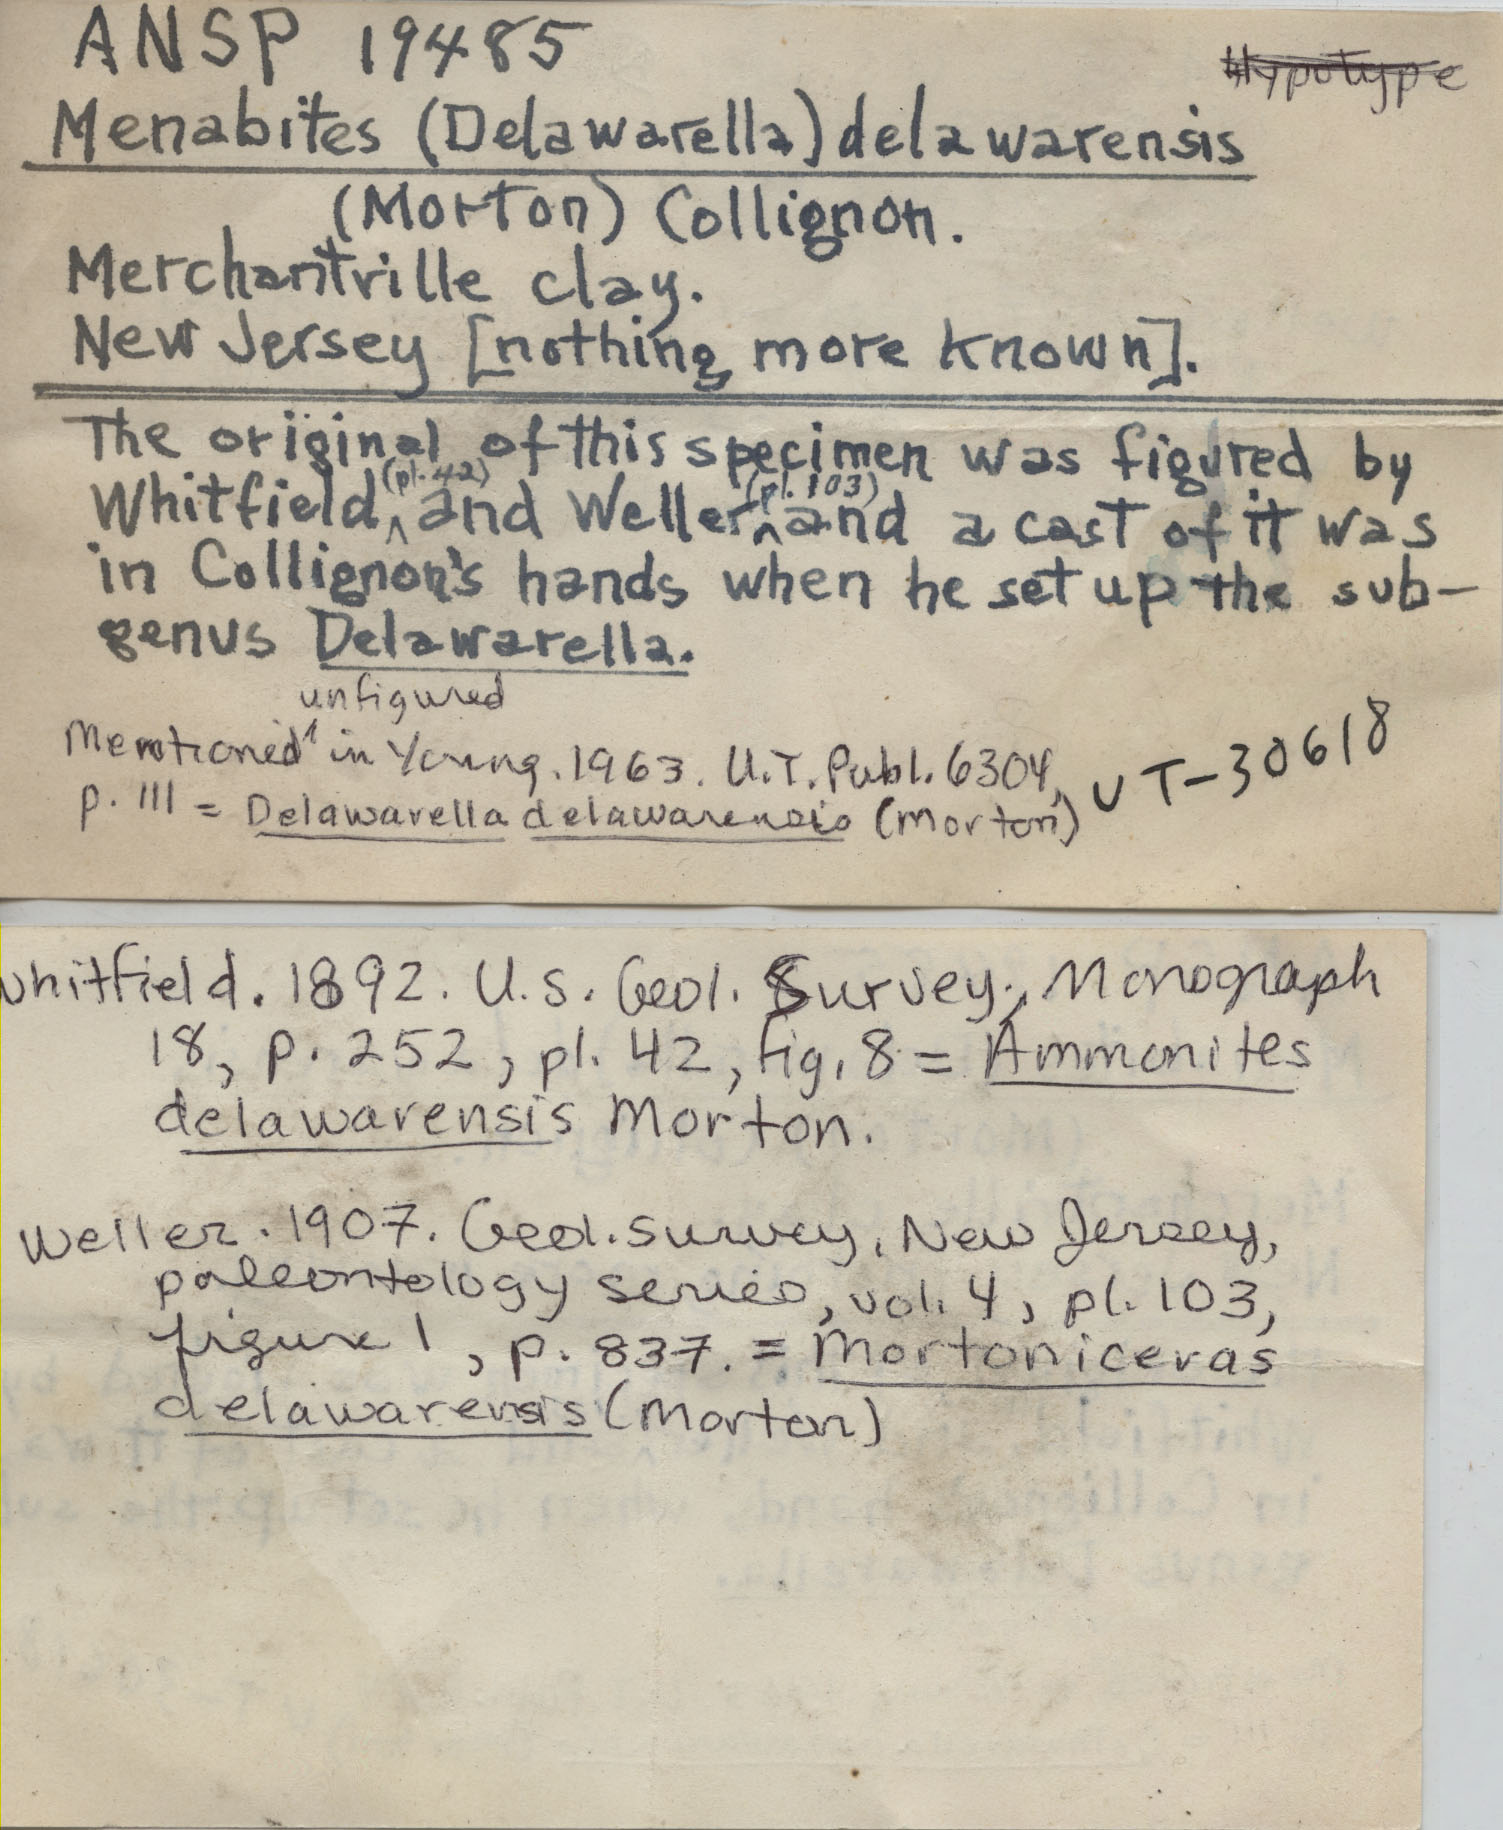 ANSP 19485
Hypotype
Menabites (Delawarella) delawarensis
(Morton) Collignon.
Merchantville clay.
New Jersey [nothing more known].
The original of this specimen was figured by
Whitfield (pl. 42) and Weller (pl. 103) and a cast of it was
in Collignon's hands when he set up the sub-
genus Delawarella.
unfigured
Mentioned in Young. 1963. U.T. Publ. 6304,
p. 111 = Delawarella delawarensis (Morton)
UT-30618
Whitfield. 1892. U.S. Geol. Survey, Monograph
18, p. 252, pl. 42, fig. 8 = Ammonites
delawarensis Morton.
Weller. 1907. Geol. Survey, New Jersey,
paleontology series, vol. 4, pl. 103,
figure 1, p. 837. = Mortoniceras
delawarensis (Morton)